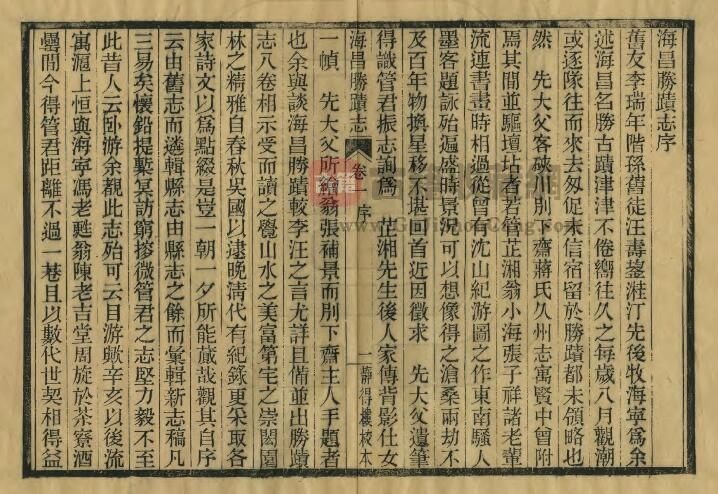 海昌勝蹟志序
舊友李瑞年階孫舊徒汪壽鋆溎汀先後牧海寧爲余
述海昌名勝古蹟津津不倦嚮往久之每歲八月觀潮
或逐隊往而來去匆促未信宿留於勝蹟都未領略也
然　先大父客硤川別下齋蔣氏久州志寓賢中曾附
焉其間並驅壇坫者若管芷湘翁小海張子祥諸老輩
流連書畫時相過從曾有沈山紀游圖之作東南騷人
墨客題詠殆遍盛時景況可以想像得之滄桑兩劫不
及百年物換星移不堪回首近因徵求　先大父遺筆
得識管君振志詢爲　芷湘先生後人家傳背影仕女
海昌勝蹟志　卷　序　一　靜得樓校本
一幀　先大父所繪翁張補景而別下齋主人手題者
也余與談海昌勝蹟較李汪之言尤詳且備並出勝蹟
志八卷相示受而讀之覺山水之美富第宅之崇閎園
林之精雅自春秋吳國以逮晚淸代有紀錄更采取各
家詩文以爲點綴是豈一朝一夕所能蕆哉觀其自序
云由舊志而遞輯縣志由縣志之餘而彙輯新志稿凡
三易矣懷鉛提槧冥訪窮搜微管君之志堅力毅不至
此昔人云卧游余觀此志殆可云目游歟辛亥以後流
寓滬上恒與海寧馮老甦翁陳老吉堂周旋於茶寮酒
罍間今得管君距離不過一巷且以數代世契相得益